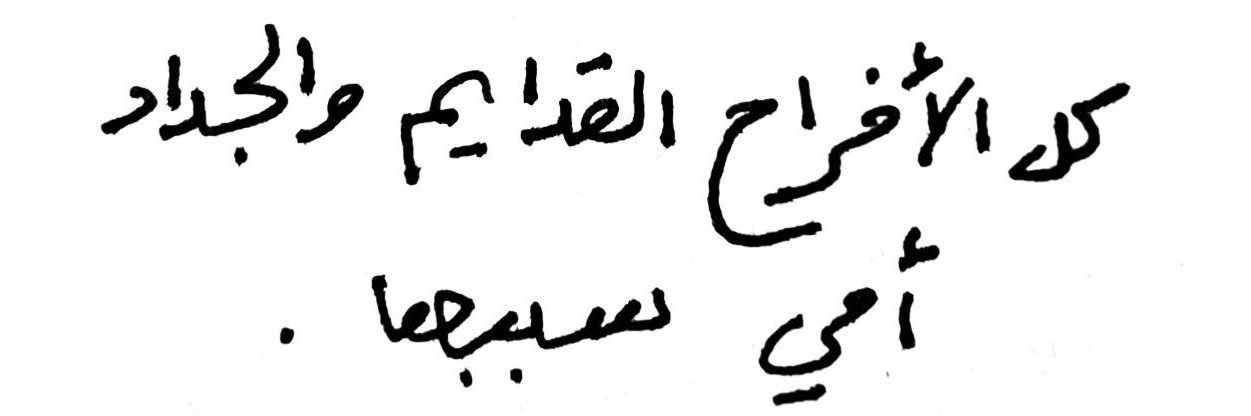 كل الأفراح القدايم والجداد
أمي سببها .